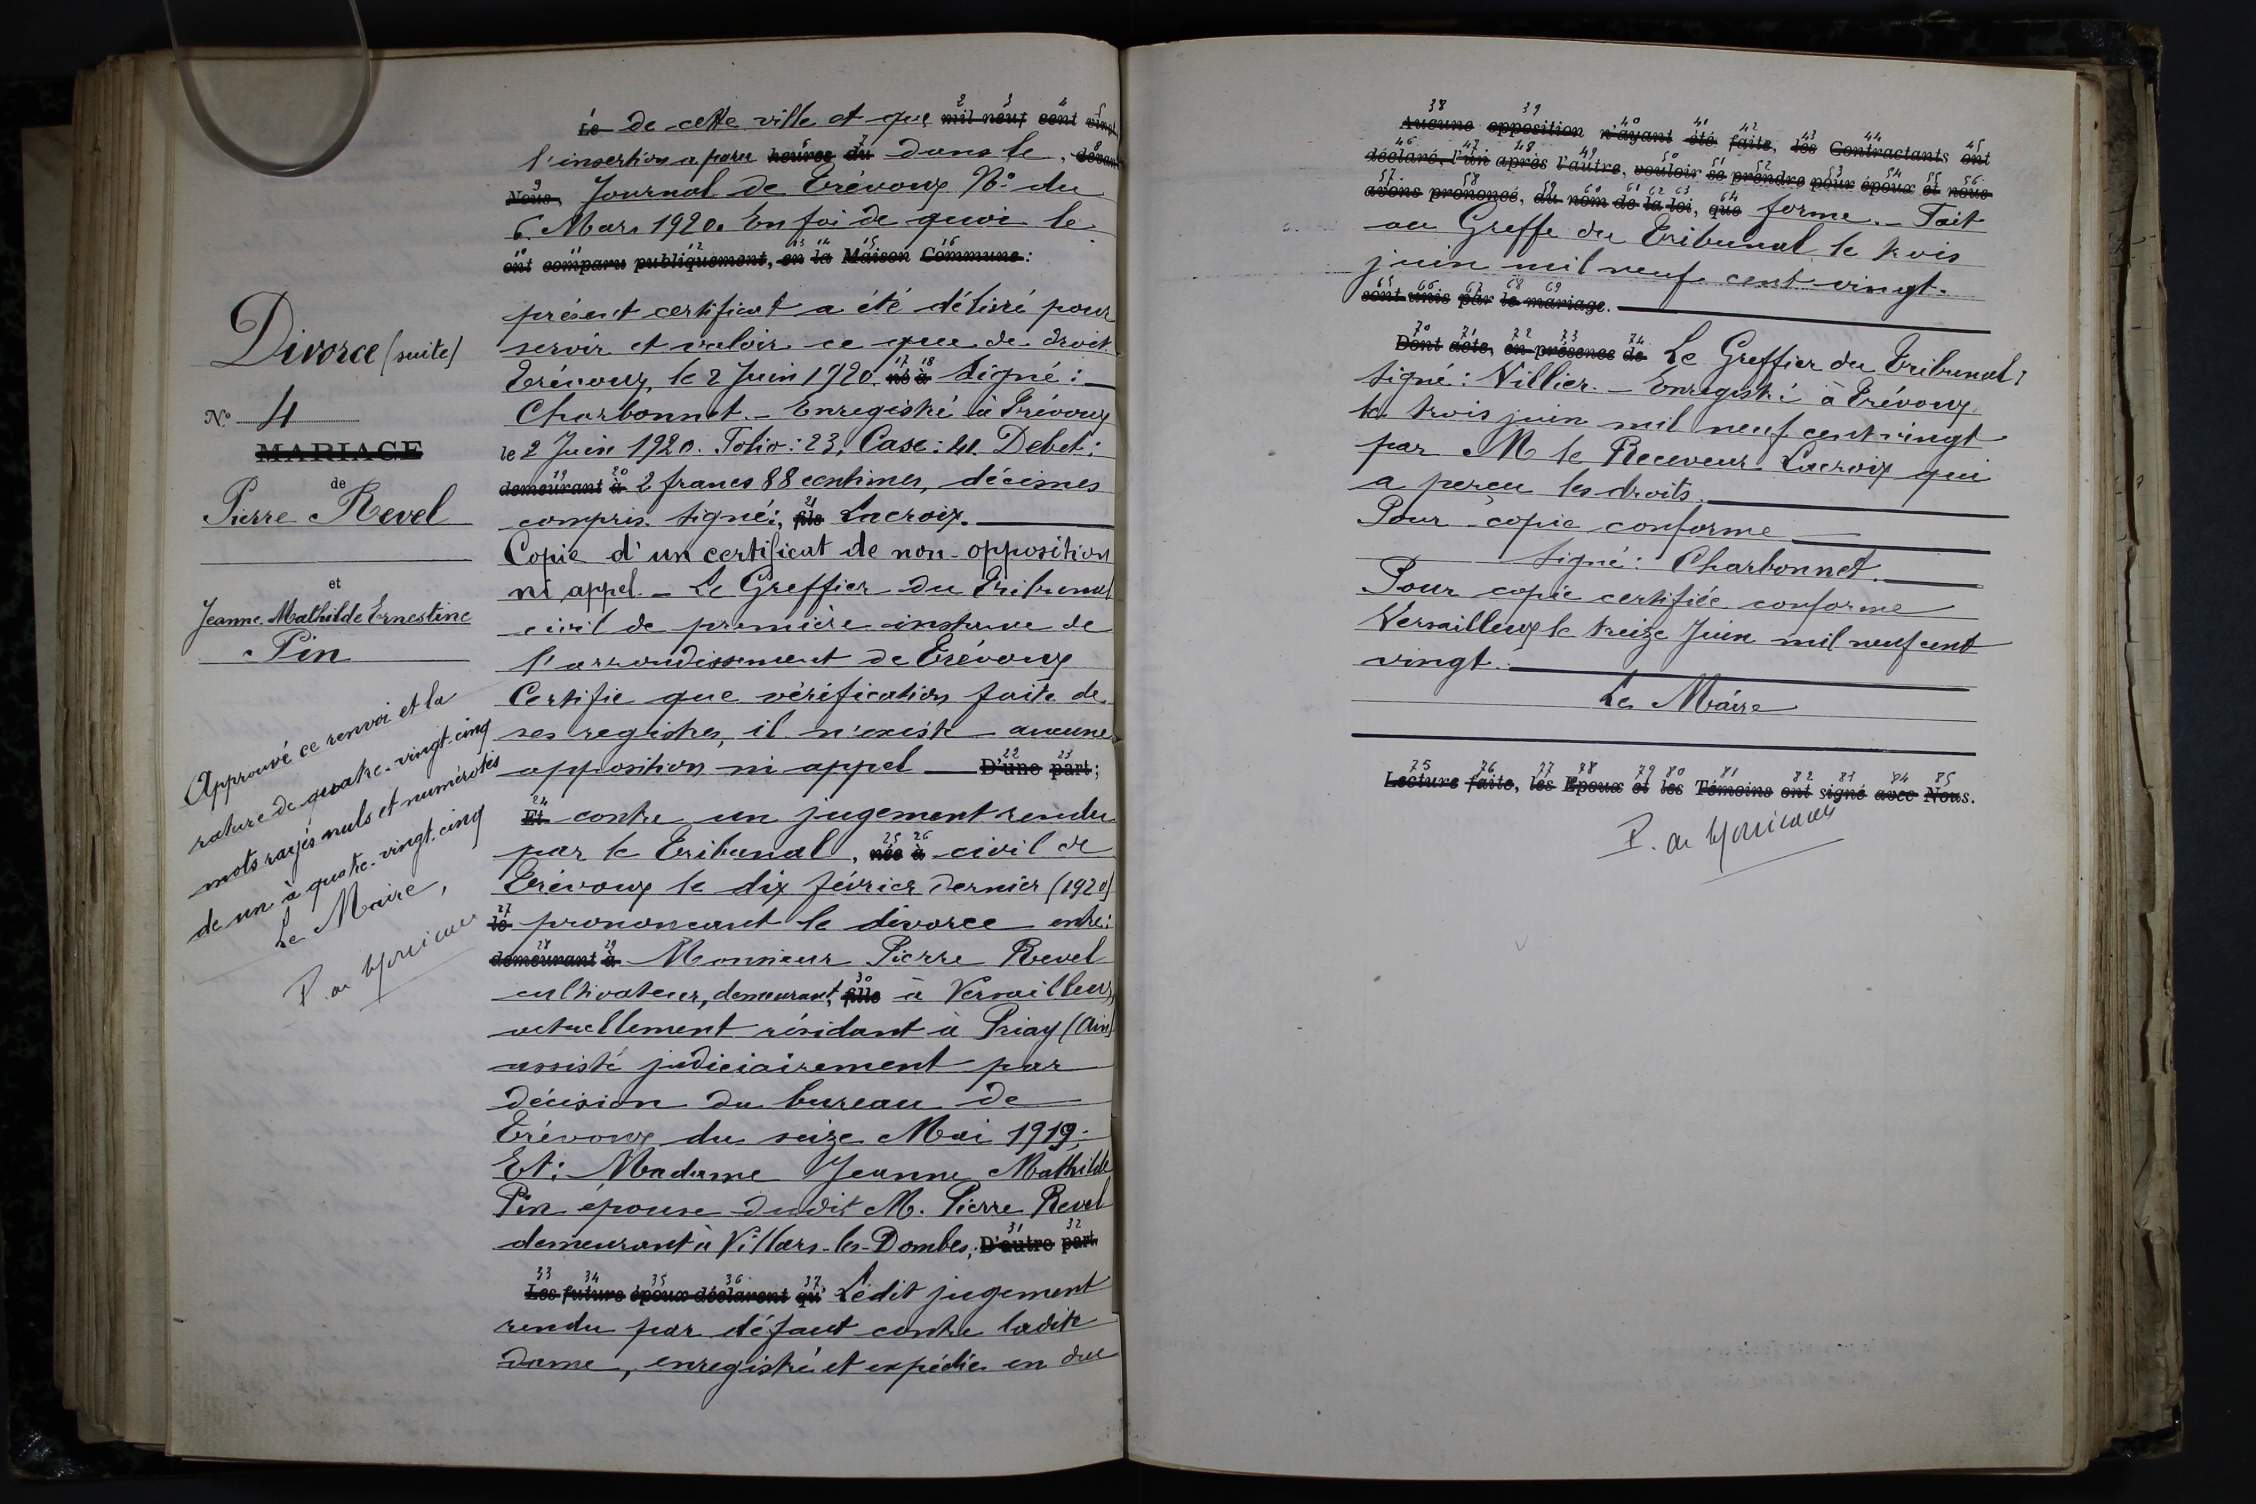 Divorce (suite)
N° 4
MARIAGE
de
Pierre Revel
et
Jeanne Mathilde Ernestine
Pin
Approuvé ce renvoi et la
rature de quatre-vingt-cinq
mots rayés nuls et numérotés
de un à quatre-vingt-cinq
Le Maire,
1 2 3 4 5
Le de cette ville et que mil neuf cent vingt
l'insertion a paru heures du dans le, devant
Nous, Journal de Trévoux N° du
6 Mars 1920. En foi de quoi le
ont comparu publiquement, en la Maison Commune:
présent certificat a été délivré pour
servir et valoir ce que de droit
Trévoux, le 2 Juin 1920. né à Signé:
Charbonnet. - Enregistré à Trévoux
le 2 Juin 1920. Folio: 23, Case: 41. Debet:
demeurant à 2 francs 88 centimes, décimes
compris. Signé:, fils Lacroix.
Copie d'un certificat de non-opposition
ni appel. - Le Greffier du Tribunal
civil de première instance de
l'arrondissement de Trévoux
Certifie que vérification faite de
ses registres, il n'existe aucune
opposition ni appel D'une part;
Et contre un jugement rendu
par le Tribunal, née à civil de
Trévoux le dix février dernier (1920)
le prononçant le divorce entre:
demeurant à Monsieur Pierre Revel
cultivateur, demeurant, fille à Versailleux,
actuellement résidant à Priay (Ain)
assisté judiciairement par
décision du bureau de
Trévoux du seize Mai 1919;
Et: Madame Jeanne Mathilde
Pin épouse dudit M. Pierre Revel
demeurant à Villars-les-Dombes; D'autre part.
33 34 35 36 37
Les futurs époux déclarent qu' Ledit jugement
rendu par défaut contre ladite
dame, enregistré et expédié en due
38 39 40 41 42 43 44 45
Aucune opposition n'ayant été faite, les Contractants ont
46 47 48 49 50 51 52 53 54 55 56
déclaré, l'un après l'autre, vouloir se prendre pour époux et nous
57 58 59 60 61 62 63 64
avons prononcé, du nom de la loi, que forme. - Fait
au Greffe du Tribunal le trois
juin mil neuf cent vingt.
65 66 67 68 69
sont unis par le mariage.
70 71 72 73 74
Dont acte, en présence de Le Greffier du Tribunal;
Signé: Villier. - Enregistré à Trévoux
le trois juin mil neuf cent vingt
par M le Receveur Lacroix qui
a perçu les droits.
Pour copie conforme
Signé: Charbonnet.
Pour copie certifiée conforme
Versailleux le treize Juin mil neuf cent
vingt.
Le Maire
75 76 77 78 79 80 81 82 83 84 85
Lecture faite, les Epoux et les Témoins ont signé avec Nous.